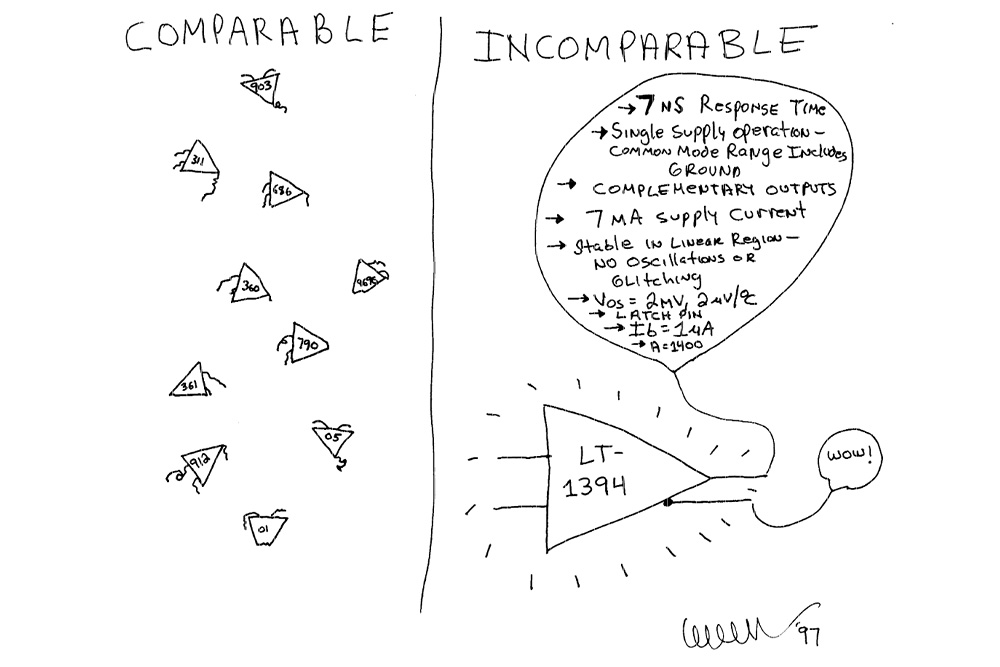 COMPARABLE
903
311
686
360
9696
790
361
05
912
01
INCOMPARABLE
→ 7 NS RESPONSE TIME
→ SINGLE SUPPLY OPERATION –
COMMON MODE RANGE INCLUDES
GROUND
→ COMPLEMENTARY OUTPUTS
→ 7 MA SUPPLY CURRENT
→ STABLE IN LINEAR REGION –
NO OSCILLATIONS OR
GLITCHING
→ VOS = 2MV, 2µV/°C
→ LATCH PIN
→ Ib = 1µA
→ A=1400
LT-
1394
WOW!
'97